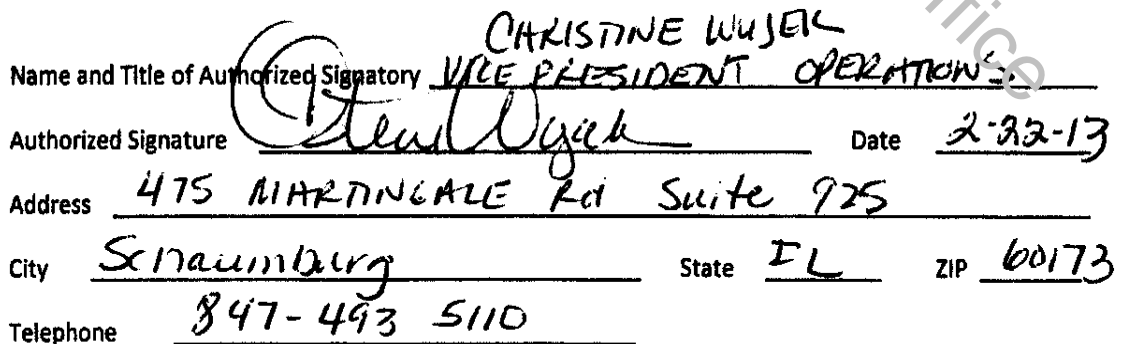 CHRISTINE WUJEK
Name and Title of Authorized Signatory VICE PRESIDENT OPERATIONS.
Authorized Signature Date 2-22-13
Address 475 MARTINGALE Rd Suite 925
City Schaumburg State IL ZIP 60173
Telephone 847-493 5110